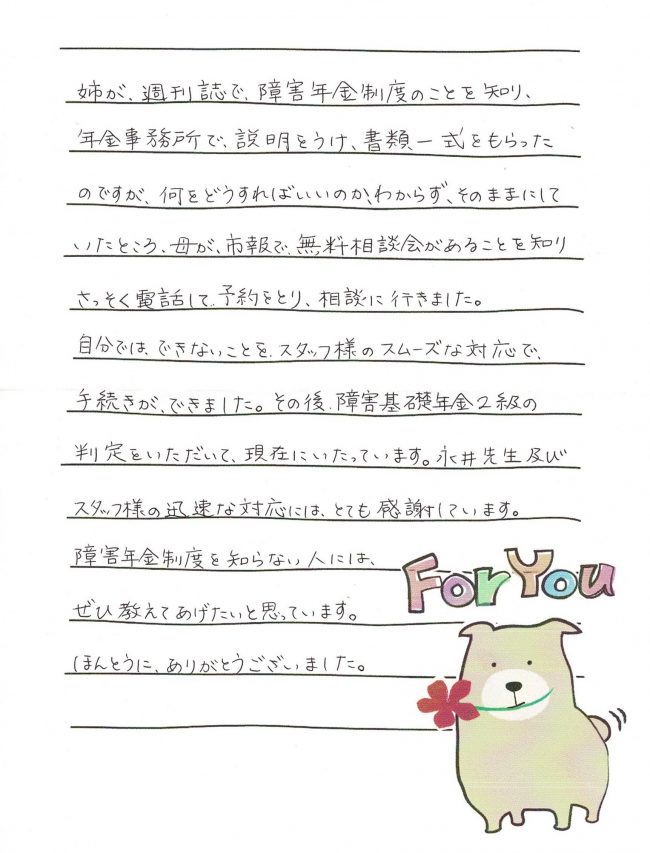 姉が、週刊誌で、障害年金制度のことを知り、
年金事務所で、説明をうけ、書類一式をもらった
のですが、何をどうすればいいのか、わからず、そのままにして
いたところ、母が、市報で、無料相談会があることを知り
さっそく電話して、予約をとり、相談に行きました。
自分では、できないことを、スタッフ様のスムーズな対応で、
手続きが、できました。その後、障害基礎年金2級の
判定をいただいて、現在にいたっています。永井先生及び
スタッフ様の迅速な対応には、とても感謝しています。
障害年金制度を知らない人には、
ぜひ教えてあげたいと思っています。
ほんとうに、ありがとうございました。
For You